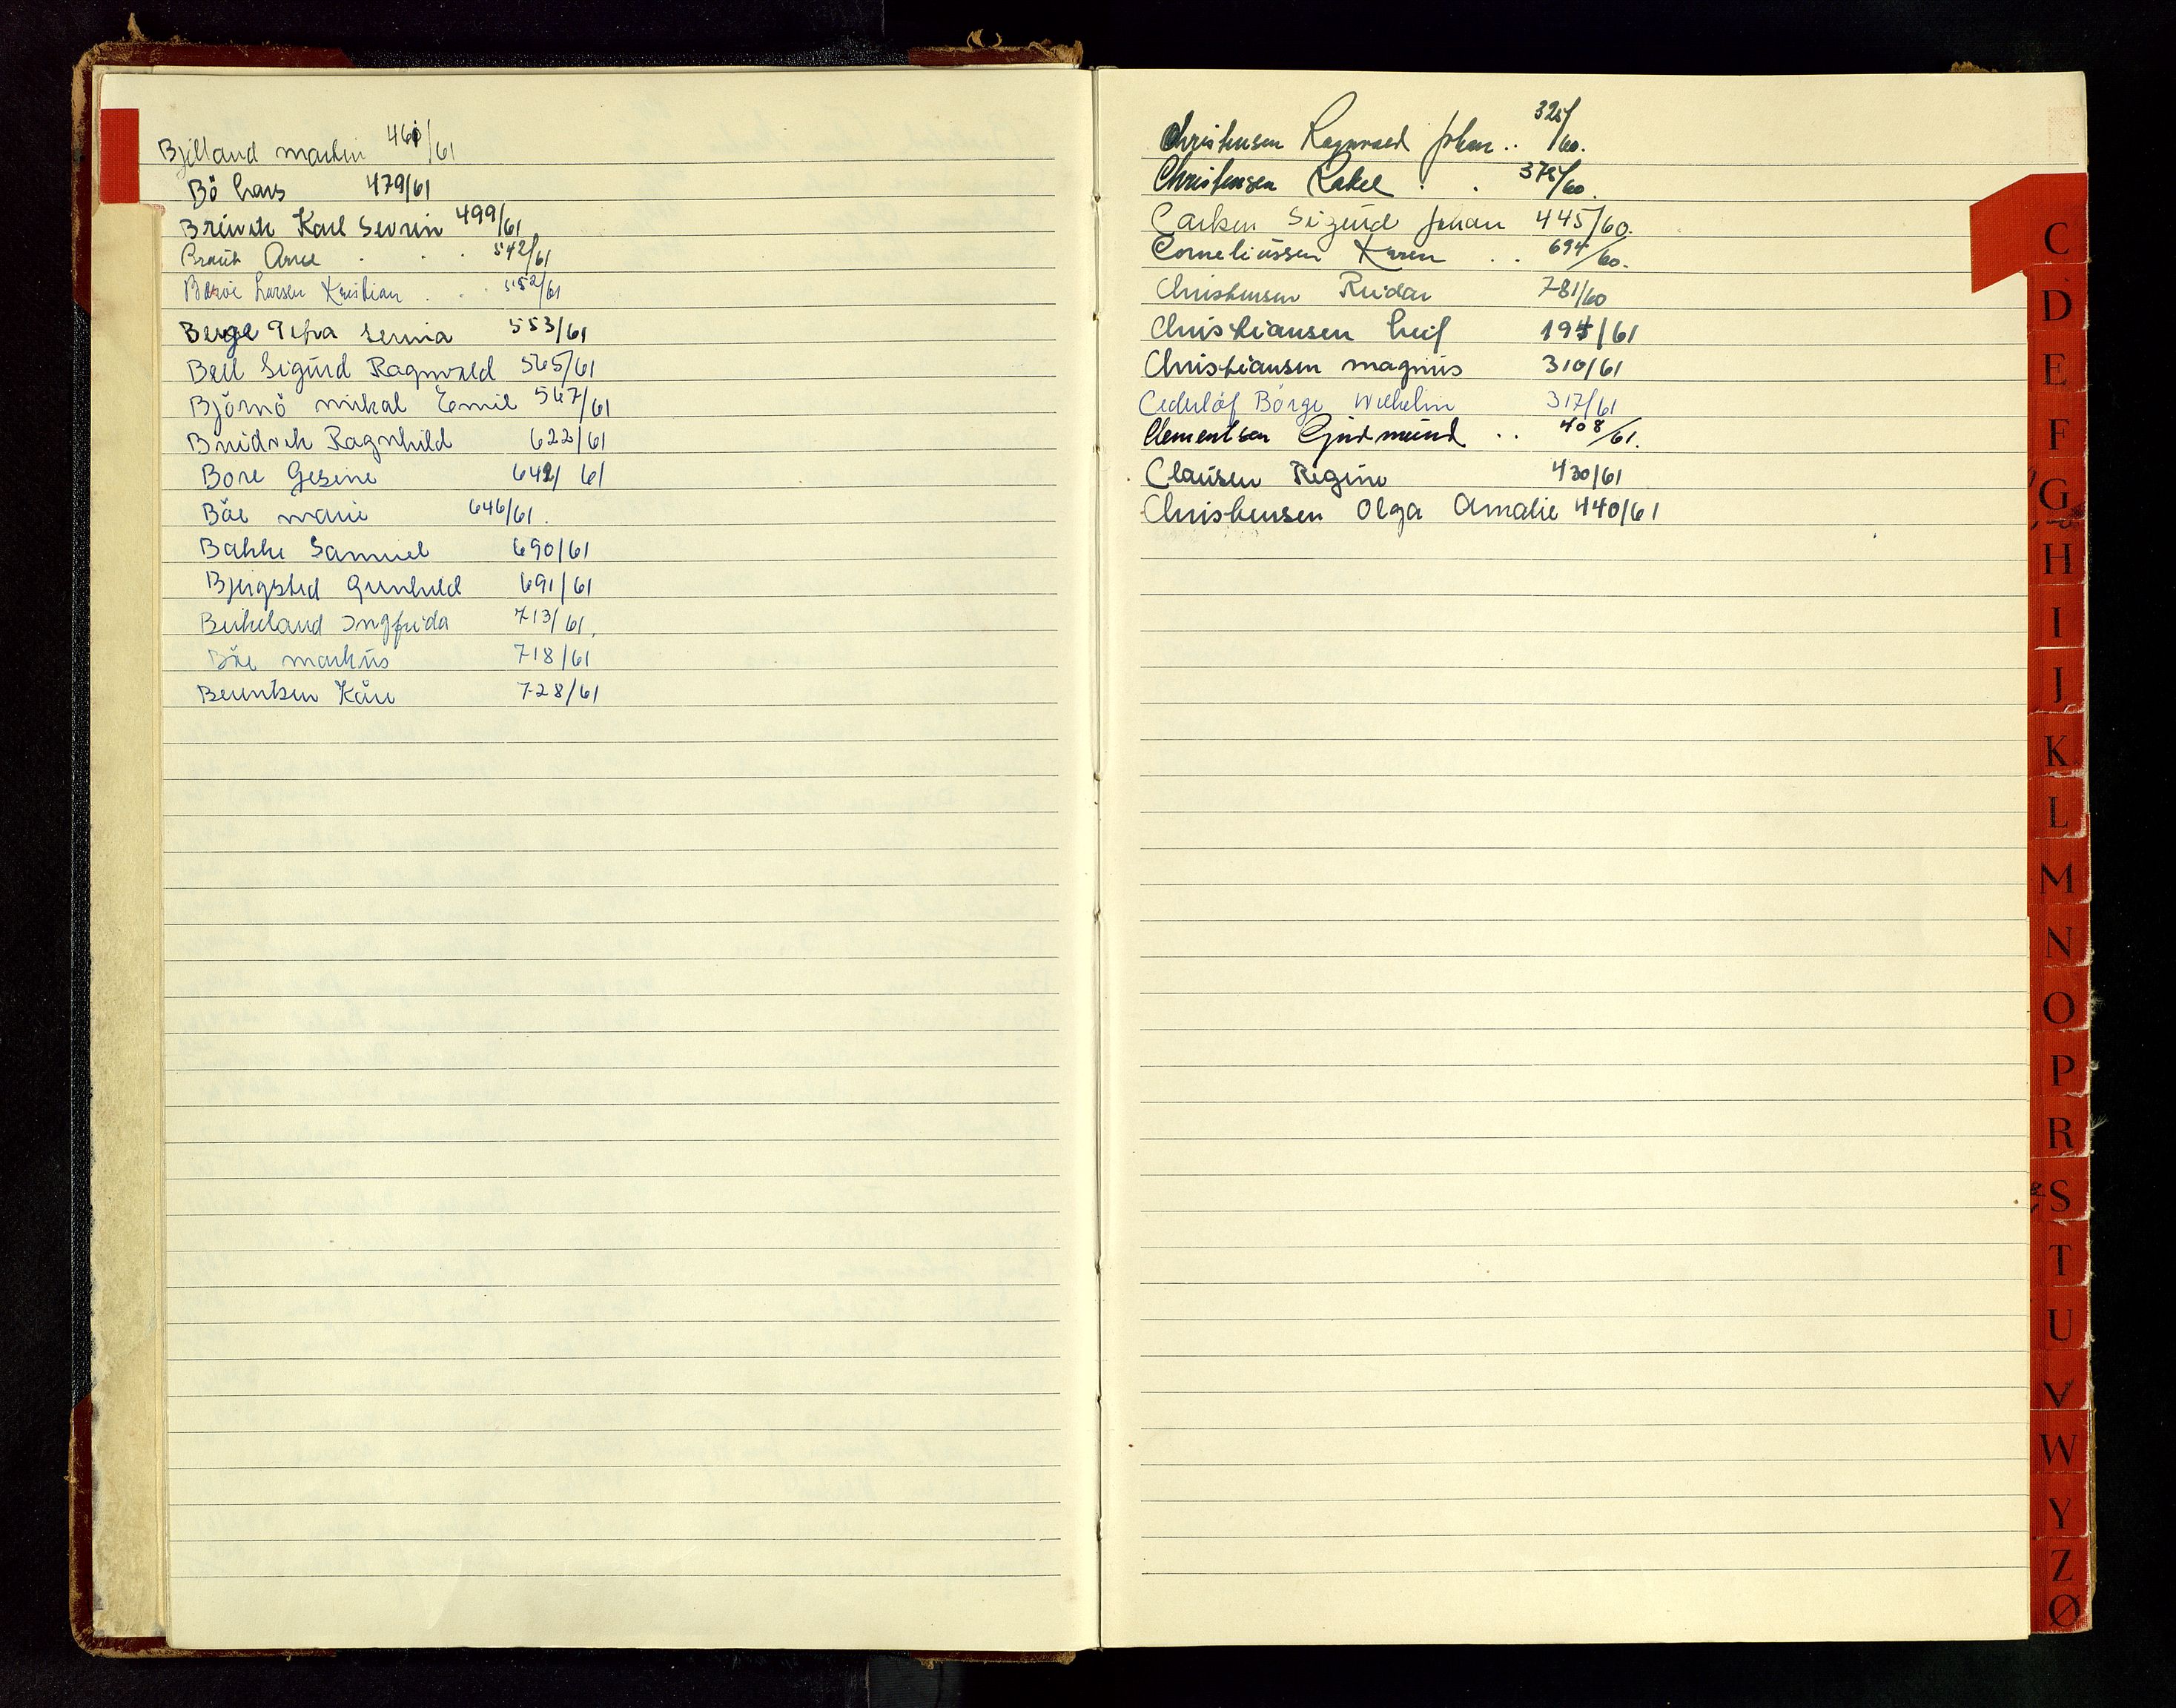 Bjelland Martin 461/61
Bö Lars 479/61
Breivik Karl Sevrin 499/61
Braut Anne . . . 542/61
Barøe Larsen Kristian . . 552/61
Berge Petra Serina 553/61
Bell Sigurd Ragnvald 565/61
Björnö Mikal Emil 567/61
Breidvik Ragnhild 622/61
Bore Gesine 642/61
Bäe Marie 646/61.
Bakke Samuel 690/61
Bjergsted Gunhild 691/61
Birkeland Ingfrida 713/61.
Bäe Markus 718/61
Berntsen Kåre 728/61
Christensen Ragnvald Johan .. 325/60.
Christensen Rakel . . 375/60.
Carlsen Sigurd Johan 445/60.
Corneliussen Karen . . 694/60.
Christensen Reidar 781/60
Christiansen Leif 194/61
Christiansen Magnus 310/61
Cederlöf Börge Wilhelm 317/61
Clementsen Gudmund .. 408/61.
Clausen Regine 430/61
Christensen Olga Amalie 440/61
C
D
E
F
G
H
I
J
K
L
M
N
O
P
R
S
T
U
V
W
Y
Z
Ø